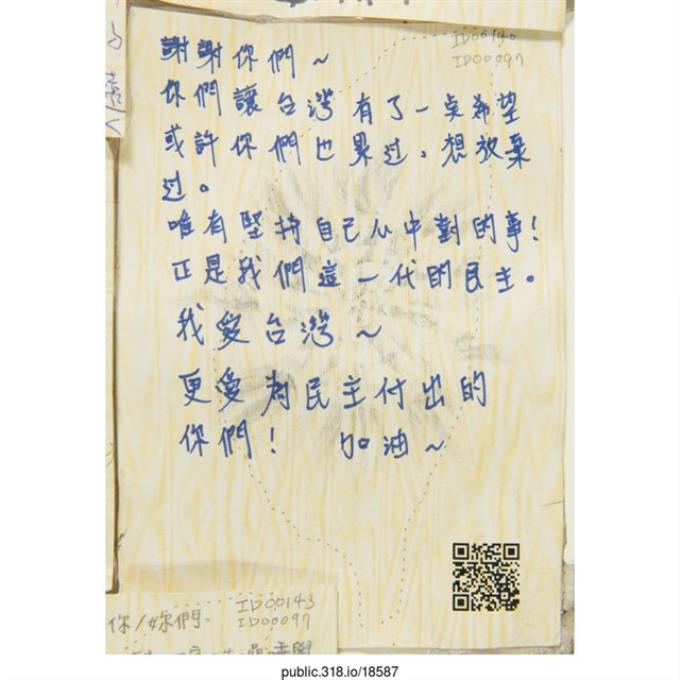 ID00140
ID00097
謝謝你們~
你們讓台灣有了一点希望
或許你們也累过,想放棄
过。
唯有堅持自己心中對的事!
正是我們這一代的民主。
我愛台灣~
更愛為民主付出的
你們! 加油~
你/妳們.
ID00143
ID00097
public.318.io/18587